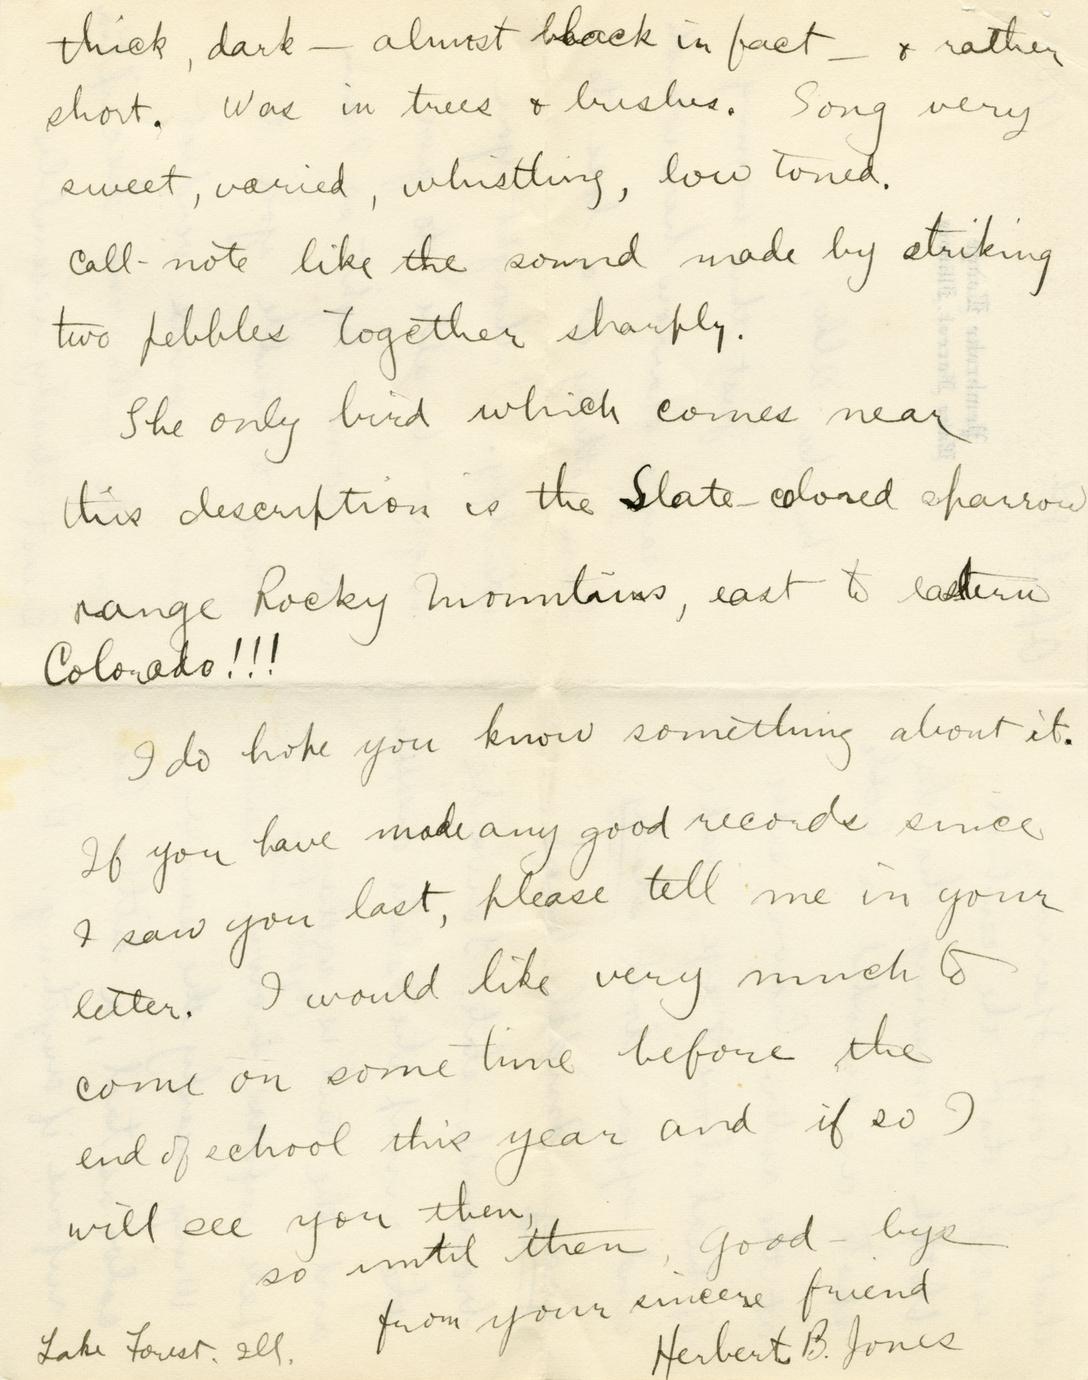 thick, dark — almost black in fact — & rather
short. Was in trees & brushes. Song very
sweet, varied, whistling, low toned.
Call-note like the sound made by striking
two pebbles together sharply.
The only bird which comes near
this description is the Slate-colored sparrow
range Rocky Mountains, east to eastern
Colorado!!!
I do hope you know something about it.
If you have made any good records since
I saw you last, please tell me in your
letter. I would like very much to
come on some time before the
end of school this year and if so I
will see you then,
so until then, good-bye
from your sincere friend
Herbert B. Jones
Lake Forest. Ill.